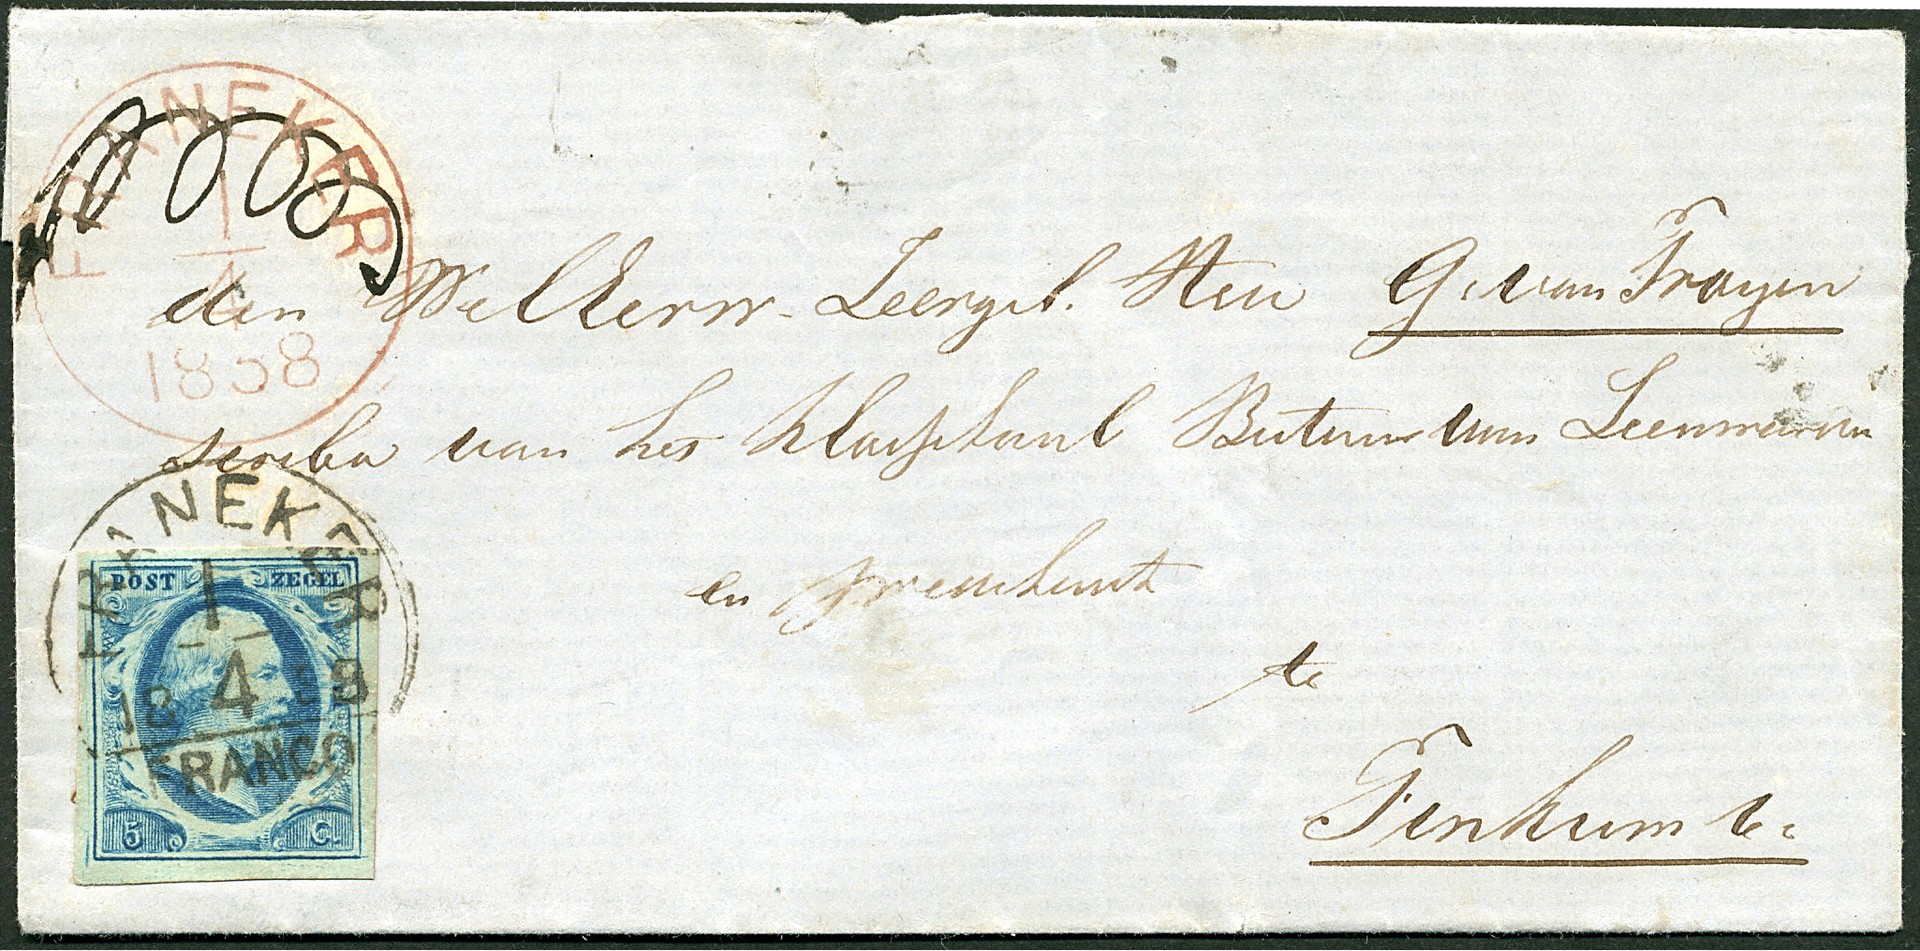 FRANEKER
1
4
1858
den WelEerw. Leergel. Heer G. van Troyen
scriba van het Klassikaal Bestuur van Leeuwarden
en predikant
te
Finkum &c
FRANEKER
1
18 4 58
FRANCO
POST ZEGEL
5 C.